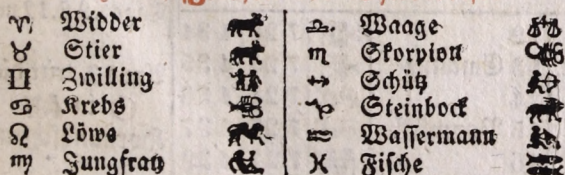 ♈ Widder
♉ Stier
♊ Zwilling
♋ Krebs
♌ Löwe
♍ Jungfrau
♎ Waage
♏ Skorpion
♐ Schütz
♑ Steinbock
♒ Wassermann
♓ Fische